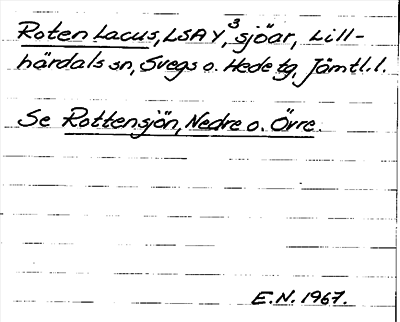 Roten Lacus, LSAY, 3 sjöar, Lill-
härdals sn, Svegs o. Hede tg, Jämtl.l.
Se Rottensjön, Nedre o. Övre.
E.N. 1967.